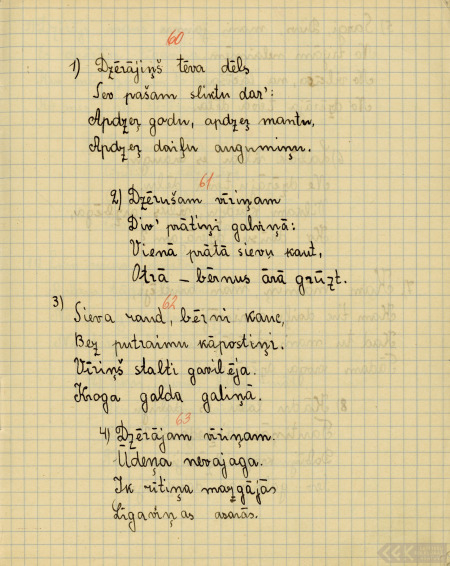 60
1) Dzērājiņš tēva dēls
Sev pašam sliktu dar':
Apdzeŗ godu, apdzeŗ mantu,
Apdzeŗ daiļu augumiņu.
61
2) Dzērušam vīriņam
Div' prātiņi galviņā:
Vienā prātā sievu kaut,
Otrā – bērnus ārā grūzt.
62
3) Sieva raud, bērni kauc,
Bez putraimu kāpostiņi.
Vīriņš stalti gavilēja.
Kroga galda galiņā.
63
4) Dzērājam vīriņam.
Ūdeņa nevajaga.
Ik rītiņa mazgājās
Līgaviņas asarās.